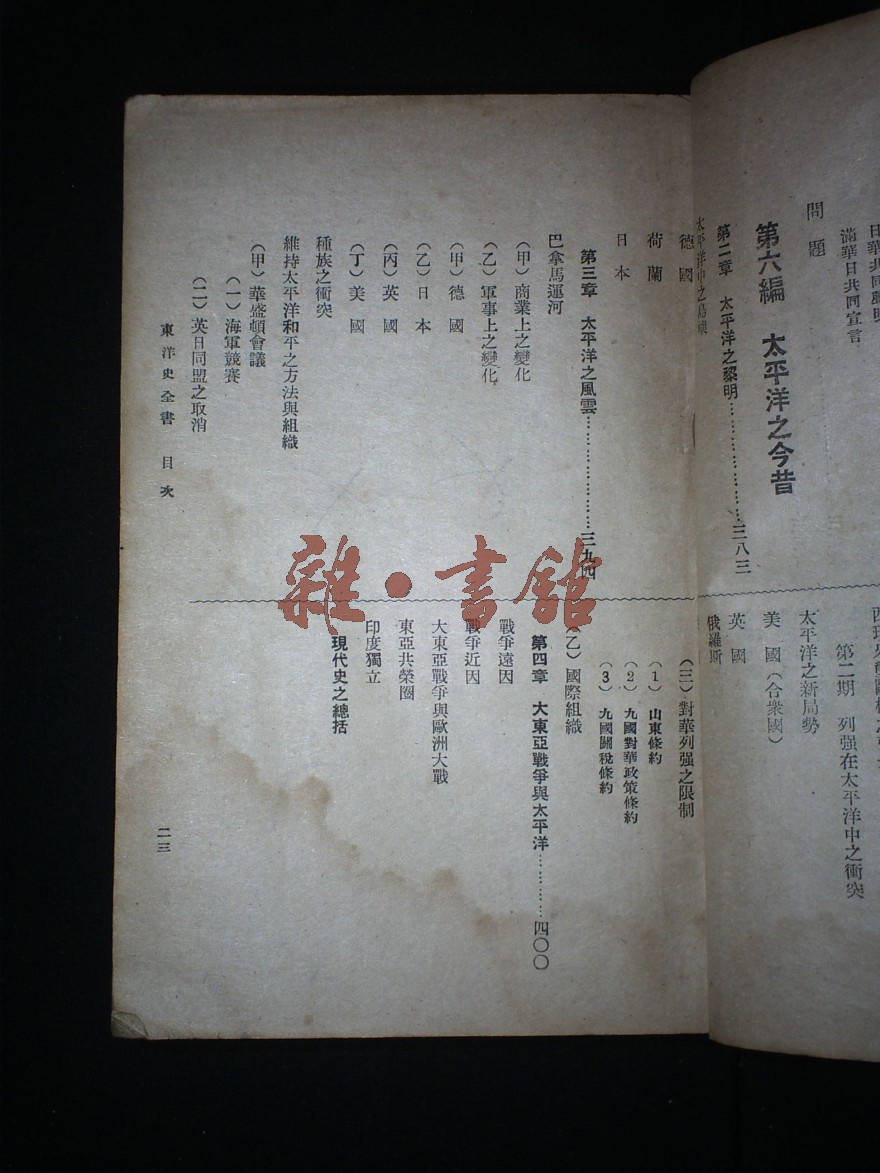 日華共同聲明
滿華日共同宣言
問題
第六編 太平洋之今昔
第二章 太平洋之黎明………………三八三
第二期 列强在太平洋中之衝突
太平洋之新局勢
美國(合衆國)
英國
俄羅斯
太平洋中之島嶼
德國
荷蘭
日本
第三章 太平洋之風雲………………三九四
巴拿馬運河
(甲)商業上之變化
(乙)軍事上之變化
(甲)德國
(乙)日本
(丙)英國
(丁)美國
種族之衝突
維持太平洋和平之方法與組織
(甲)華盛頓會議
(一)海軍競賽
(二)英日同盟之取消
(三)對華列强之限制
(1)山東條約
(2)九國對華政策條約
(3)九國關稅條約
(乙)國際組織
第四章 大東亞戰爭與太平洋…………四〇〇
戰爭遠因
戰爭近因
大東亞戰爭與歐洲大戰
東亞共榮圈
印度獨立
現代史之總括
東洋史全書 目次
二三
雜·書館